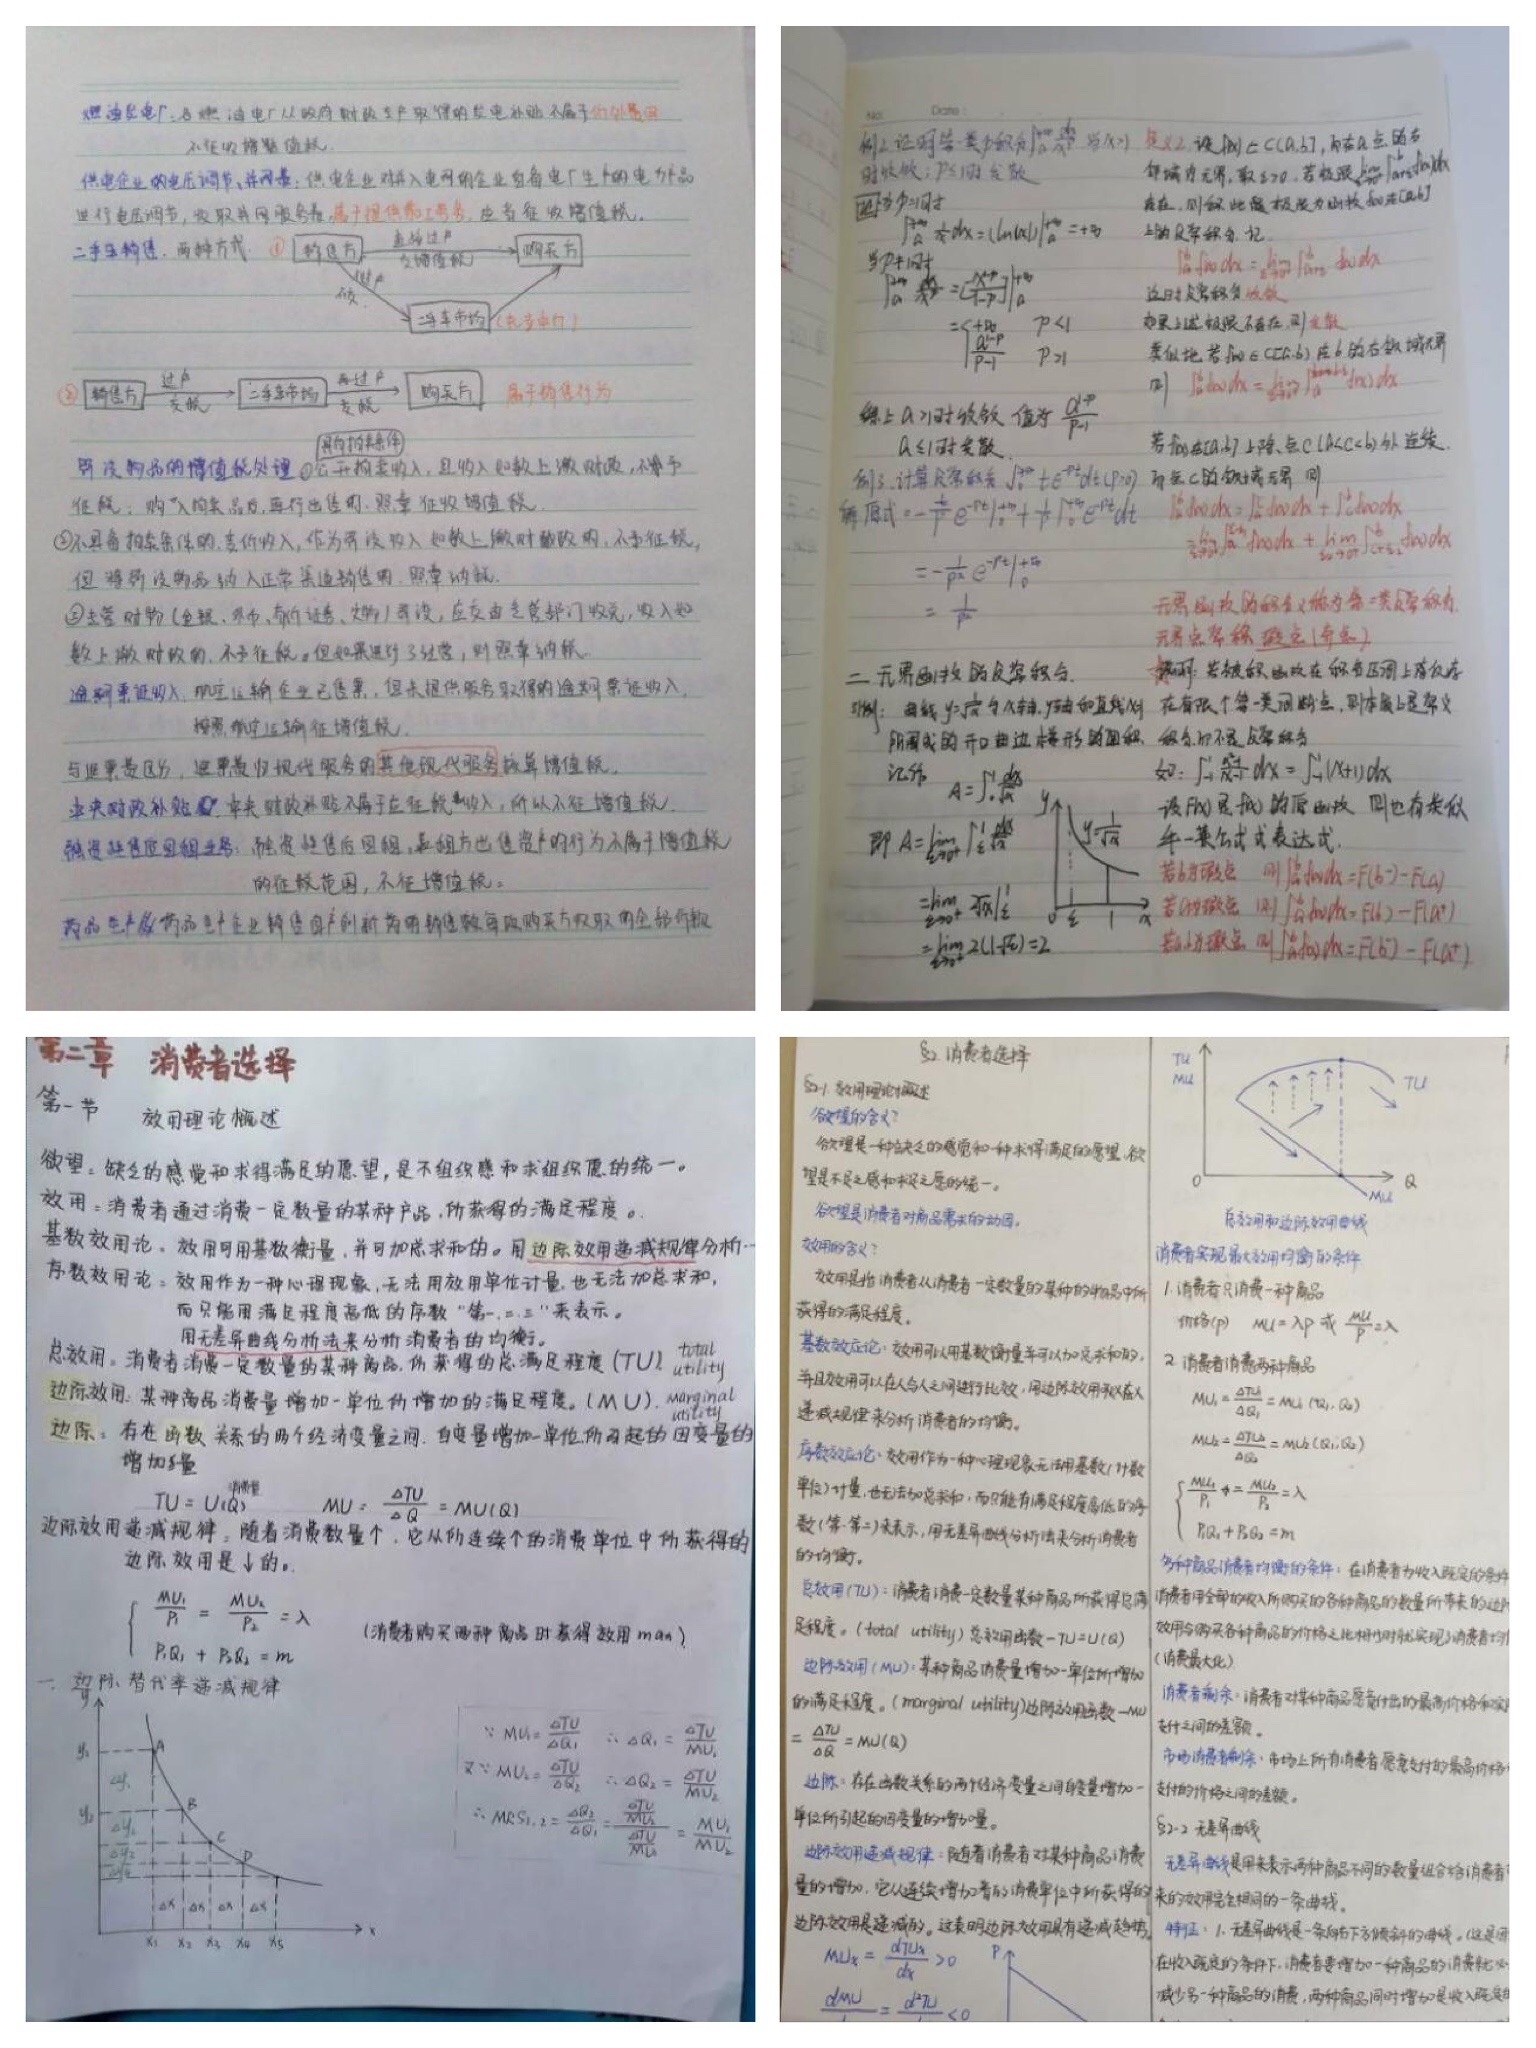 燃油发电厂：各燃油电厂从政府财政专户取得的发电补贴不属于价外费用
不征收增值税.
供电企业的电压调节、并网费：供电企业对并入电网的企业自备电厂生产的电力产品
进行电压调节，收取并网服务费，属于提供加工劳务，应当征收增值税.
二手车销售. 两种方式 ① 销售方 直接过户 交增值税 购买方
过户
二手车市场
② 销售方 过户 交税 二手车市场 再过户 交税 购买方 属于销售行为
具有拍卖条件
罚没物品的增值税处理 ①公开拍卖收入，且收入如数上缴财政，不予
征税；购入拍卖品后，再行出售的. 照章征收增值税.
②不具备拍卖条件的. 变价收入，作为罚没收入如数上缴财政的，不予征税，
但将罚没物品纳入正常渠道销售的. 照章纳税.
③主管财物（金银、外币、有价证券、文物）罚没，应交由主管部门收兑，收入如
数上缴财政的. 不予征税。但如果进行了经营，则照章纳税.
逾期票证收入. 航空运输企业已售票，但未提供服务取得的逾期票证收入.
按照航空运输征增值税.
与退票费区分，退票费归现代服务的其他现代服务核算增值税.
中央财政补贴. 中央财政补贴不属于应征税收入，所以不征增值税.
融资性售后回租业务：融资性售后回租，承租方出售资产的行为不属于增值税
的征税范围，不征增值税。
药品生产 药品生产企业销售自产创新药的销售额为向购买方收取的全部价款
No. Date
时收敛；P≤1时发散
证 当P=1时
∫ₐ⁺∞ 1/x dx = (ln|x|)|ₐ⁺∞ = +∞
当P≠1时
= { +∞ P<1
a^(1-P)/(P-1) P>1
综上 a>1时收敛 值为 a^(1-P)/(P-1)
a≤1时发散.
例3. 计算反常积分 ∫₀⁺∞ te^(-pt)dt (P>0)
解 原式 = -t/p e^(-pt)|₀⁺∞ + 1/p ∫₀⁺∞ e^(-pt)dt
= -1/p² e^(-pt)|₀⁺∞
= 1/p²
二. 无界函数的反常积分.
引例：曲线 y=1/√x 与x轴. y轴和直线x=1
所围成的开口曲边梯形的面积.
记作 A=∫₀¹ dx/√x
即 A=lim(ε→0⁺) ∫_ε¹ dx/√x
=lim(ε→0⁺) 2√x|_ε¹
=lim(ε→0⁺) 2(1-√ε)=2
y y=1/√x 0 ε 1 x
定义2. 设f(x)∈C(a,b]，而在a点的右
邻域内无界，取ε>0，若极限lim(ε→0⁺)∫_(a+ε)^b f(x)dx
存在，则称此极限为函数f(x)在[a,b]
上的反常积分. 记
∫ₐᵇf(x)dx=lim(ε→0⁺)∫_(a+ε)^b f(x)dx
这时反常积分收敛
如果上述极限不存在，则发散
类似地 若f(x)∈C[a,b) 在b的右邻域无界
若f(x)在[a,b]上除点c(a<c<b)外连续.
而在c的邻域无界 则
∫ₐᵇf(x)dx=∫ₐᶜf(x)dx + ∫_cᵇf(x)dx
无界函数的积分又称为第二类反常积分.
无界点常称瑕点(奇点)
说明：若被积函数在积分区间上存仅存
在有限个第一类间断点，则本质上是常义
积分，而不是反常积分
如：∫₋₁¹ (x²-1)/(x-1) dx = ∫₋₁¹(x+1)dx
设F(x)是f(x)的原函数 则也有类似
牛—莱公式式表达式.
若b为瑕点 则∫ₐᵇf(x)dx=F(b⁻)-F(a)
若a为瑕点 则∫ₐᵇf(x)dx=F(b)-F(a⁺)
若a.b为瑕点 则∫ₐᵇf(x)dx=F(b⁻)-F(a⁺)
第二章 消费者选择
第一节 效用理论概述
欲望：缺乏的感觉和求得满足的愿望，是不组织感和求组织愿的统一。
效用：消费者通过消费一定数量的某种产品，所获得的满足程度。
基数效用论：效用可用基数衡量，并可加总求和的。用边际效用递减规律分析…
序数效用论：效用作为一种心理现象，无法用效用单位计量，也无法加总求和，
而只能用满足程度高低的序数“第一.二.三”来表示。
用无差异曲线分析法来分析消费者的均衡。
总效用：消费者消费一定数量的某种商品，所获得的总满足程度(TU). total utility
边际效用：某种商品消费量增加一单位所增加的满足程度。(MU). marginal utility
边际：存在函数关系的两个经济变量之间. 自变量增加一单位所引起的因变量的
增加量
TU = U(Q) 消费量 MU = ΔTU/ΔQ = MU(Q)
边际效用递减规律：随着消费数量↑，它从所连续个的消费单位中所获得的
边际效用是↓的。
{ MU₁/P₁ = MU₂/P₂ = λ
P₁Q₁ + P₂Q₂ = m (消费者购买两种商品时获得效用max)
一. 边际替代率递减规律
y y₁ Δy₁ y₂ Δy₂ Δy₃ Δy₄ A B C D
Δx Δx Δx Δx
x₁ x₂ x₃ x₄ x₅ x
∵ MU₁=ΔTU/ΔQ₁ ∴ ΔQ₁ = ΔTU/MU₁
又∵ MU₂=ΔTU/ΔQ₂ ∴ ΔQ₂ = ΔTU/MU₂
∴ MRS₁,₂ = ΔQ₂/ΔQ₁ = (ΔTU/MU₂)/(ΔTU/MU₁) = MU₁/MU₂
§2. 消费者选择
§2-1. 效用理论概述
欲望的含义？
欲望是一种缺乏的感觉和一种求得满足的愿望. 欲
望是不足之感和求足之愿的统一。
欲望是消费者对商品需求的动因。
效用的含义？
效用是指消费者从消费者一定数量的某种的物品中所
获得的满足程度。
基数效应论：效用可以用基数衡量并可以加总求和的，
并且效用可以在人与人之间进行比效，用边际效用
递减规律来分析消费者的均衡。
序数效应论：效用作为一种心理现象无法用基数(计数
单位)计量，也无法加总求和，而只能有满足程度高低的序
数(第一.第二)来表示，用无差异曲线分析法来分析消费者
的均衡。
总效用(TU)：消费者消费一定数量某种商品所获得总满
足程度。(total utility) 总效用函数—TU=U(Q)
边际效用(MU)：某种商品消费量增加一单位所增加
的满足程度。(marginal utility)边际效用函数—MU
= ΔTU/ΔQ = MU(Q)
边际：存在函数关系的两个经济变量之间自变量增加一
单位所引起的因变量的增加量。
边际效用递减规律：随着消费者对某种商品消费
量的增加，它从连续增加着的消费单位中所获得的
边际效用是递减的。这表明边际效用具有递减趋势。
MUx = dTUx/dx >0
dMU = d²TU <0
P
TU
MU TU
0 MU Q
总效用和边际效用曲线
消费者实现最大效用均衡的条件
1. 消费者只消费一种商品
价格(p) MU=λP 或 MU/P=λ
2. 消费者消费两种商品
MU₁=ΔTU₁/ΔQ₁=MU₁(Q₁,Q₂)
MU₂=ΔTU₂/ΔQ₂=MU₂(Q₁,Q₂)
{ MU₁/P₁=MU₂/P₂=λ
P₁Q₁+P₂Q₂=m
多种商品消费者均衡的条件：在消费者为收入既定的条件
消费者用全部的收入所购买的各种商品的数量所带来的边际
效用与购买各种商品的价格之比相当时就实现了消费者均
(消费最大化)
消费者剩余：消费者对某种商品愿意付出的最高价格和实
支付之间的差额。
市场消费者剩余：市场上所有消费者愿意支付的最高价格
支付的价格之间的差额。
§2-2 无差异曲线
无差异曲线是用来表示两种商品不同的数量组合给消费者
来的效用完全相同的一条曲线。
特征：1. 无差异曲线是一条向右下方倾斜的曲线。(这是
在收入既定的条件下，消费者要增加一种商品的消费就必
减少另一种商品的消费，两种商品同时增加是收入既定